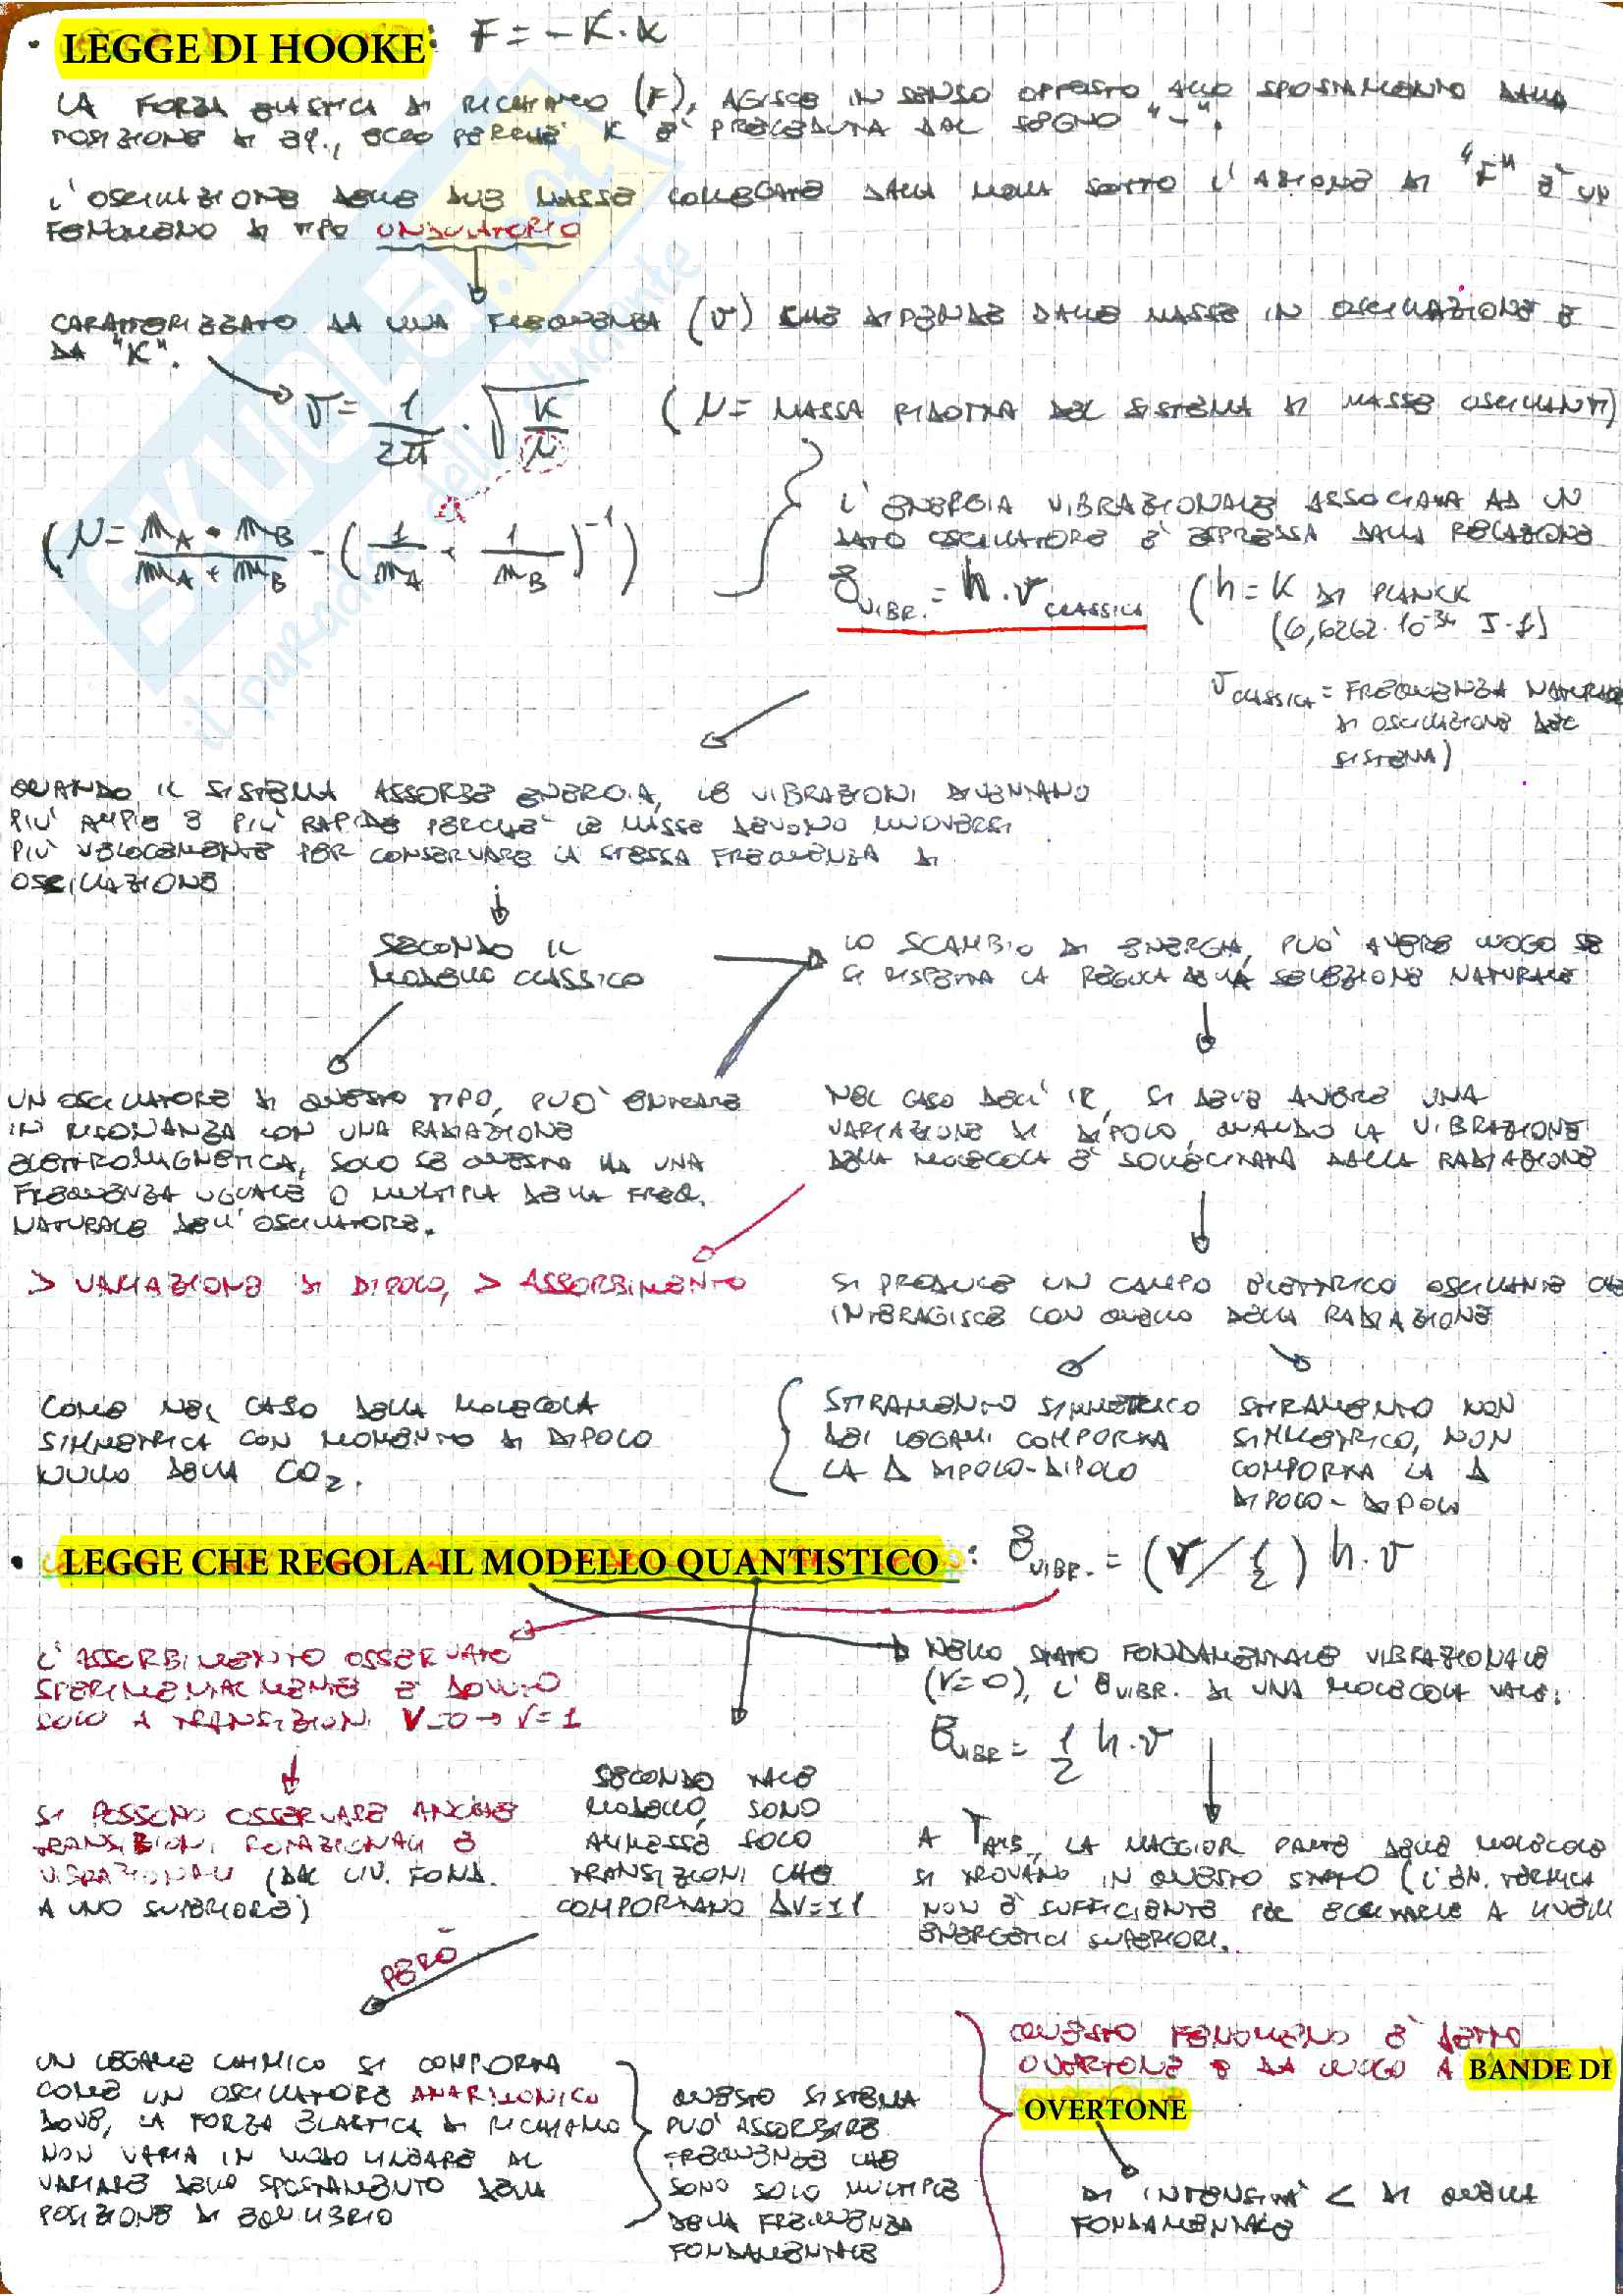 • LEGGE DI HOOKE: F = -K·x
LA FORZA ELASTICA DI RICHIAMO (F), AGISCE IN SENSO OPPOSTO ALLO SPOSTAMENTO DALLA
POSIZIONE DI EQ., ECCO PERCHE' K E' PRECEDUTA DAL SEGNO "-".
L'OSCILLAZIONE DELLE DUE MASSE COLLEGATE DALLA MOLLA SOTTO L'AZIONE DI "F" E' UN
FENOMENO DI TIPO ONDULATORIO
CARATTERIZZATO DA UNA FREQUENZA (ν) CHE DIPENDE DALLE MASSE IN OSCILLAZIONE E
DA "K".
ν = 1/2π · √K/μ (μ = MASSA RIDOTTA DEL SISTEMA DI MASSE OSCILLANTI)
(μ = mA · mB / mA + mB - (1/mA + 1/mB)^-1)
L'ENERGIA VIBRAZIONALE ASSOCIATA AD UN
DATO OSCILLATORE E' ESPRESSA DALLA RELAZIONE
E VIBR. = h·ν CLASSICA (h = K DI PLANCK
(6,6262·10^-34 J·s)
ν CLASSICA = FREQUENZA NATURALE
DI OSCILLAZIONE DEL
SISTEMA)
QUANDO IL SISTEMA ASSORBE ENERGIA, LE VIBRAZIONI DIVENTANO
PIU' AMPIE E PIU' RAPIDE PERCHE' LE MASSE DEVONO MUOVERSI
PIU' VELOCEMENTE PER CONSERVARE LA STESSA FREQUENZA DI
OSCILLAZIONE
SECONDO IL
MODELLO CLASSICO
LO SCAMBIO DI ENERGIA, PUO' AVERE LUOGO SE
SI RISPETTA LA REGOLA DELLA SELEZIONE NATURALE
UN OSCILLATORE DI QUESTO TIPO, PUO' ENTRARE
IN RISONANZA CON UNA RADIAZIONE
ELETTROMAGNETICA, SOLO SE QUESTA HA UNA
FREQUENZA UGUALE O MULTIPLA DELLA FREQ.
NATURALE DELL'OSCILLATORE.
NEL CASO DELL'IR, SI DEVE AVERE UNA
VARIAZIONE DI DIPOLO, QUANDO LA VIBRAZIONE
DELLA MOLECOLA E' SOLLECITATA DALLA RADIAZIONE
> VARIAZIONE DI DIPOLO, > ASSORBIMENTO
SI PRODUCE UN CAMPO ELETTRICO OSCILLANTE CHE
INTERAGISCE CON QUELLO DELLA RADIAZIONE
COME NEL CASO DELLA MOLECOLA
SIMMETRICA CON MOMENTO DI DIPOLO
NULLO DELLA CO2.
STIRAMENTO SIMMETRICO
DEI LEGAMI COMPORTA
LA Δ DIPOLO-DIPOLO
STIRAMENTO NON
SIMMETRICO, NON
COMPORTA LA Δ
DIPOLO-DIPOLO
• LEGGE CHE REGOLA IL MODELLO QUANTISTICO: E VIBR. = (V/ 1/2) h·ν
L'ASSORBIMENTO OSSERVATO
SPERIMENTALMENTE E' DOVUTO
SOLO A TRANSIZIONI V=0 → V=1
NELLO STATO FONDAMENTALE VIBRAZIONALE
(V=0), L'E VIBR. DI UNA MOLECOLA VALE:
E VIBR = 1/2 h·ν
SI POSSONO OSSERVARE ANCHE
TRANSIZIONI ROTAZIONALI E
VIBRAZIONALI (DAL LIV. FOND.
A UNO SUPERIORE)
SECONDO TALE
MODELLO, SONO
AMMESSE SOLO
TRANSIZIONI CHE
COMPORTANO ΔV=±1
A T AMB, LA MAGGIOR PARTE DELLE MOLECOLE
SI TROVANO IN QUESTO STATO (L'EN. TERMICA
NON E' SUFFICIENTE PER ECCITARLE A LIVELLI
ENERGETICI SUPERIORI.
PERO'
UN LEGAME CHIMICO SI COMPORTA
COME UN OSCILLATORE ANARMONICO
DOVE, LA FORZA ELASTICA DI RICHIAMO
NON VARIA IN MODO LINEARE AL
VARIARE DELLO SPOSTAMENTO DELLA
POSIZIONE DI EQUILIBRIO
QUESTO SISTEMA
PUO' ASSORBIRE
FREQUENZE CHE
SONO SOLO MULTIPLE
DELLA FREQUENZA
FONDAMENTALE
QUESTO FENOMENO E' DETTO
OVERTONE E DA LUOGO A BANDE DI
OVERTONE
DI INTENSITA' < DI QUELLA
FONDAMENTALE
SKUOLA.net
il paradiso dello studente